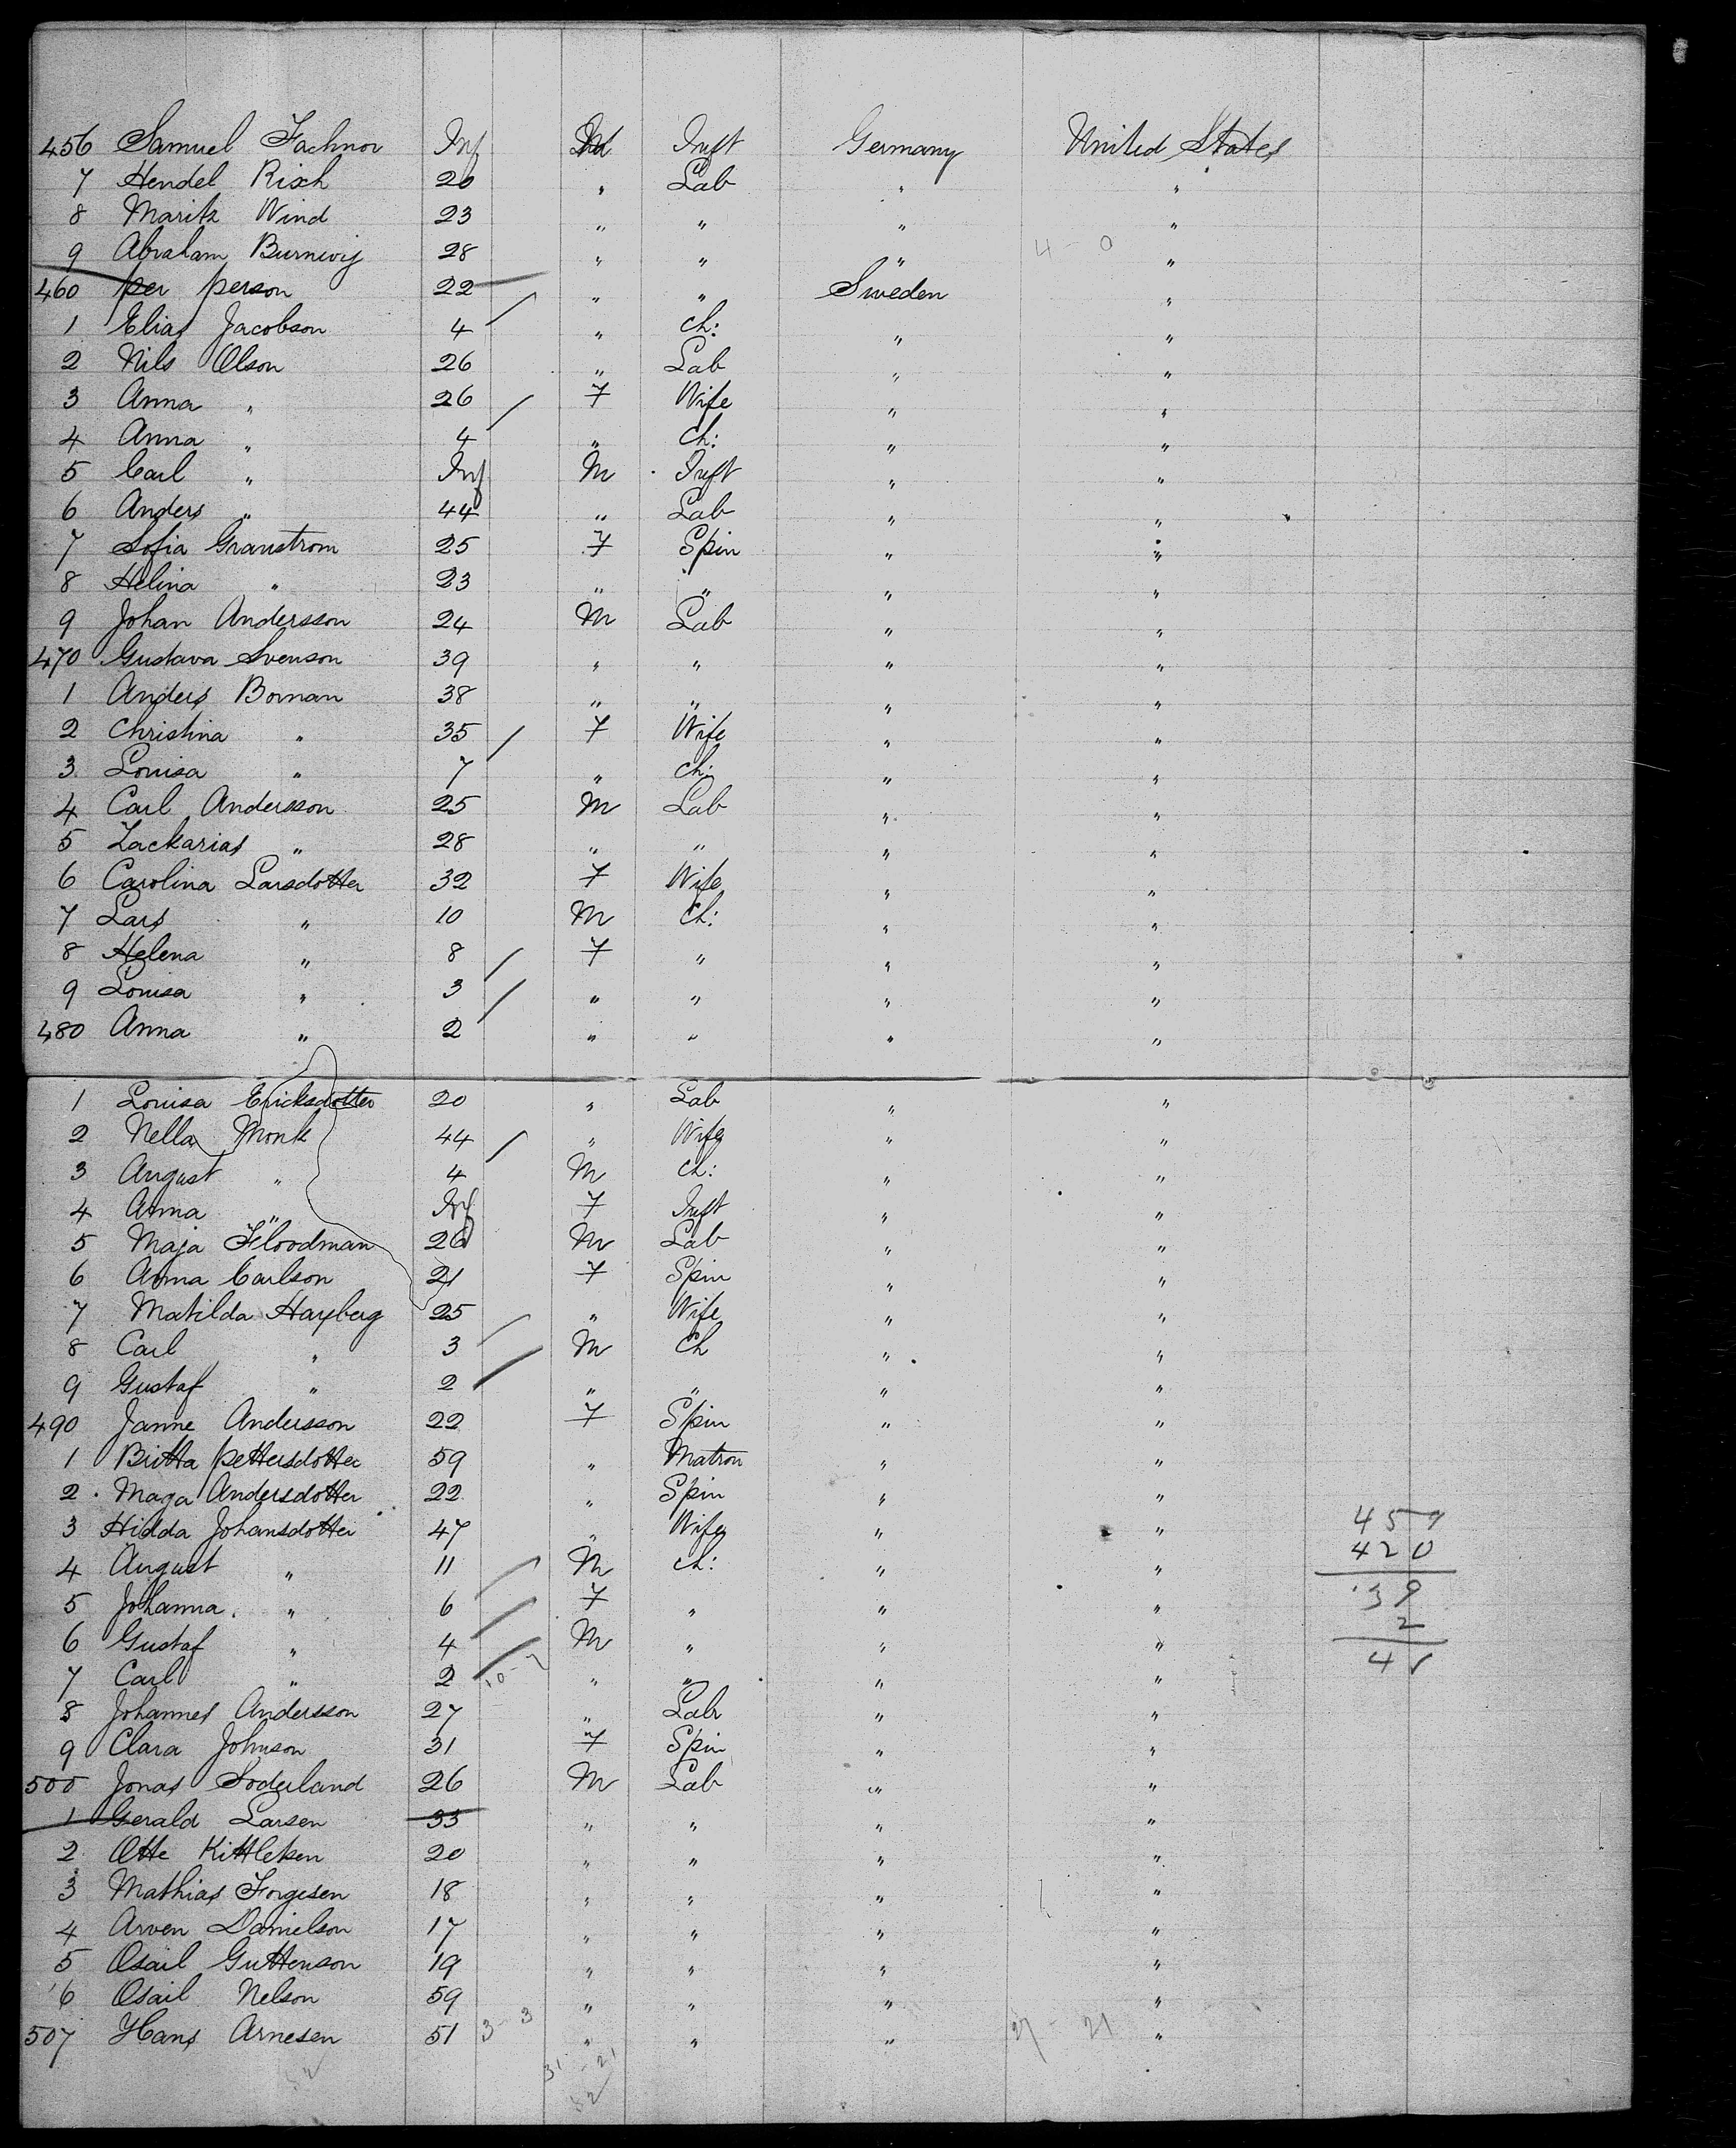 456 Samuel Fachnor Inf M Inft Germany United States
7 Hendel Risch 20 " Lab " "
8 Maritz Wind 23 " " " "
9 Abraham Burnwig 28 " " " " 4 - 0
460 per person 22 " " Sweden "
1 Elias Jacobson 4 " Ch: " "
2 Nils Olson 26 " Lab " "
3 Anna " 26 F Wife " "
4 Anna " 4 " Ch: " "
5 Carl " Inf M Inft " "
6 Anders " 44 " Lab " "
7 Sofia Granstrom 25 F Spin " "
8 Helina " 23 " " " "
9 Johan Andersson 24 M Lab " "
470 Gustava Svenson 39 " " " "
1 Anders Boman 38 " " " "
2 Christina " 35 F Wife " "
3 Louisa " 7 " Ch: " "
4 Carl Andersson 25 M Lab " "
5 Zackarias " 28 " " " "
6 Carolina Larsdotter 32 F Wife " "
7 Lars " 10 M Ch: " "
8 Helena " 8 F " " "
9 Louisa " 3 " " " "
480 Anna " 2 " " " "
1 Louisa Ericksdotter 20 " Lab " "
2 Nella Monk 44 " Wife " "
3 August " 4 M Ch: " "
4 Anna " Inf F Inft " "
5 Maja Floodman 26 M Lab " "
6 Anna Carlson 21 F Spin " "
7 Matilda Haxberg 25 " Wife " "
8 Carl " 3 M Ch " "
9 Gustaf " 2 " " " "
490 Janne Andersson 22 F Spin " "
1 Britta pettersdotter 59 " Matron " "
2 Maga Andersdotter 22 " Spin " "
3 Hidda Johansdotter 47 " Wife " "
4 August " 11 M Ch: " "
5 Johanna " 6 F " " "
6 Gustaf " 4 M " " "
7 Carl " 2 " " " "
8 Johannes Andersson 27 " Lab " "
9 Clara Johnson 31 F Spin " "
500 Jonas Soderland 26 M Lab " "
1 Gerald Larsen 33 " " " "
2 Otte Kittleksen 20 " " " "
3 Mathias Forgesen 18 " " " "
4 Arven Danielson 17 " " " "
5 Osail Guttenson 19 " " " "
6 Osail Nelson 59 " " " "
507 Hans Arnesen 51 3 - 3 " " " 21 - 21 "
31 - 21
52
459
420
39
2
41